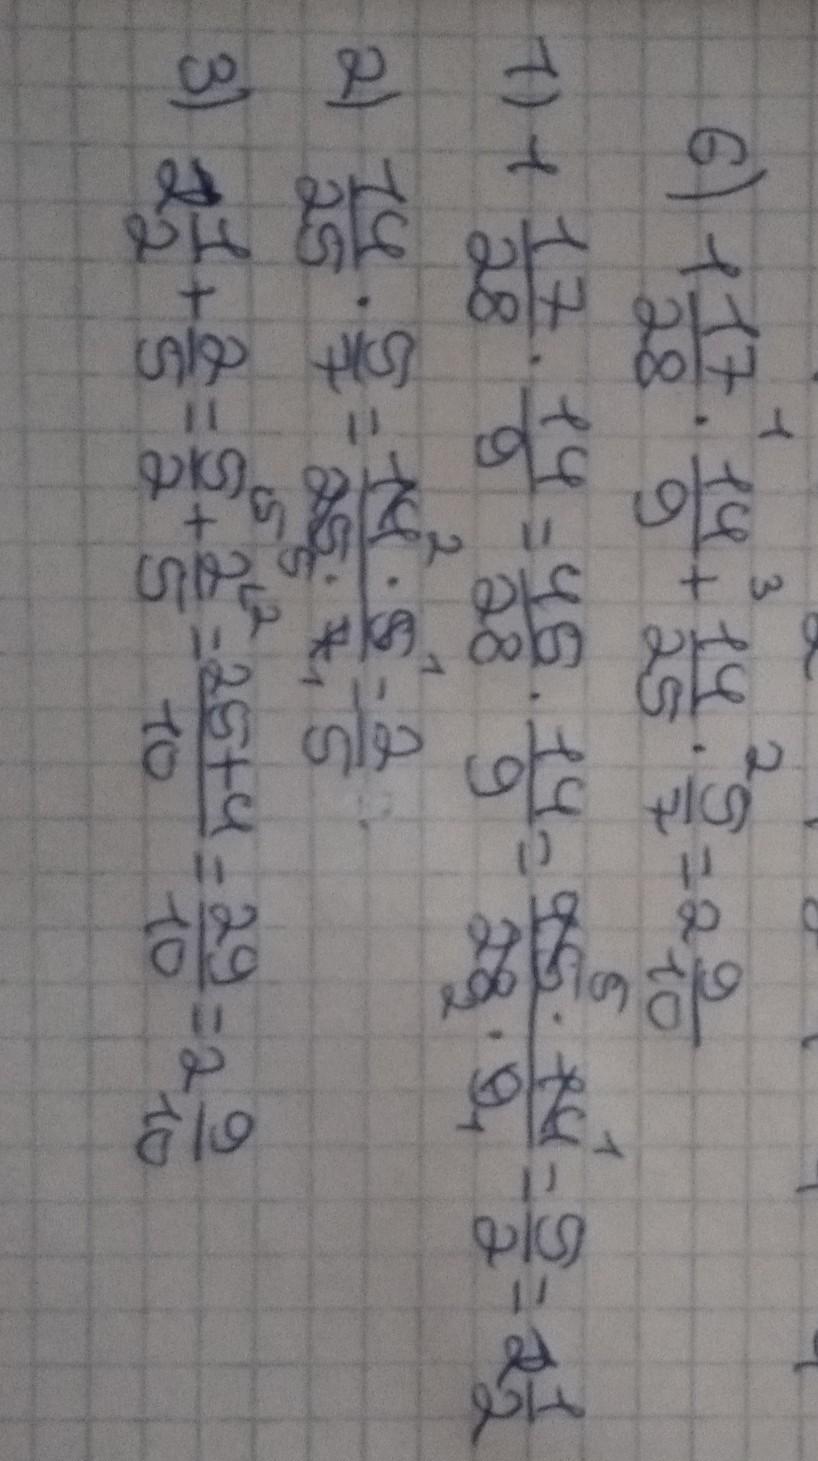 6) 1 17/28 ·¹ 14/9 +³ 14/25 ·² 5/7 = 2 9/10
1) 1 17/28 · 14/9 = 45/28 · 14/9 = 45⁵ · 14¹ / 28₂ · 9₁ = 5/2 = 2 1/2
2) 14/25 · 5/7 = 14² · 5¹ / 25₅ · 7₁ = 2/5
3) 2 1/2 + 2/5 = 5/2 ⁽⁵ + 2/5 ⁽² = 25+4/10 = 29/10 = 2 9/10